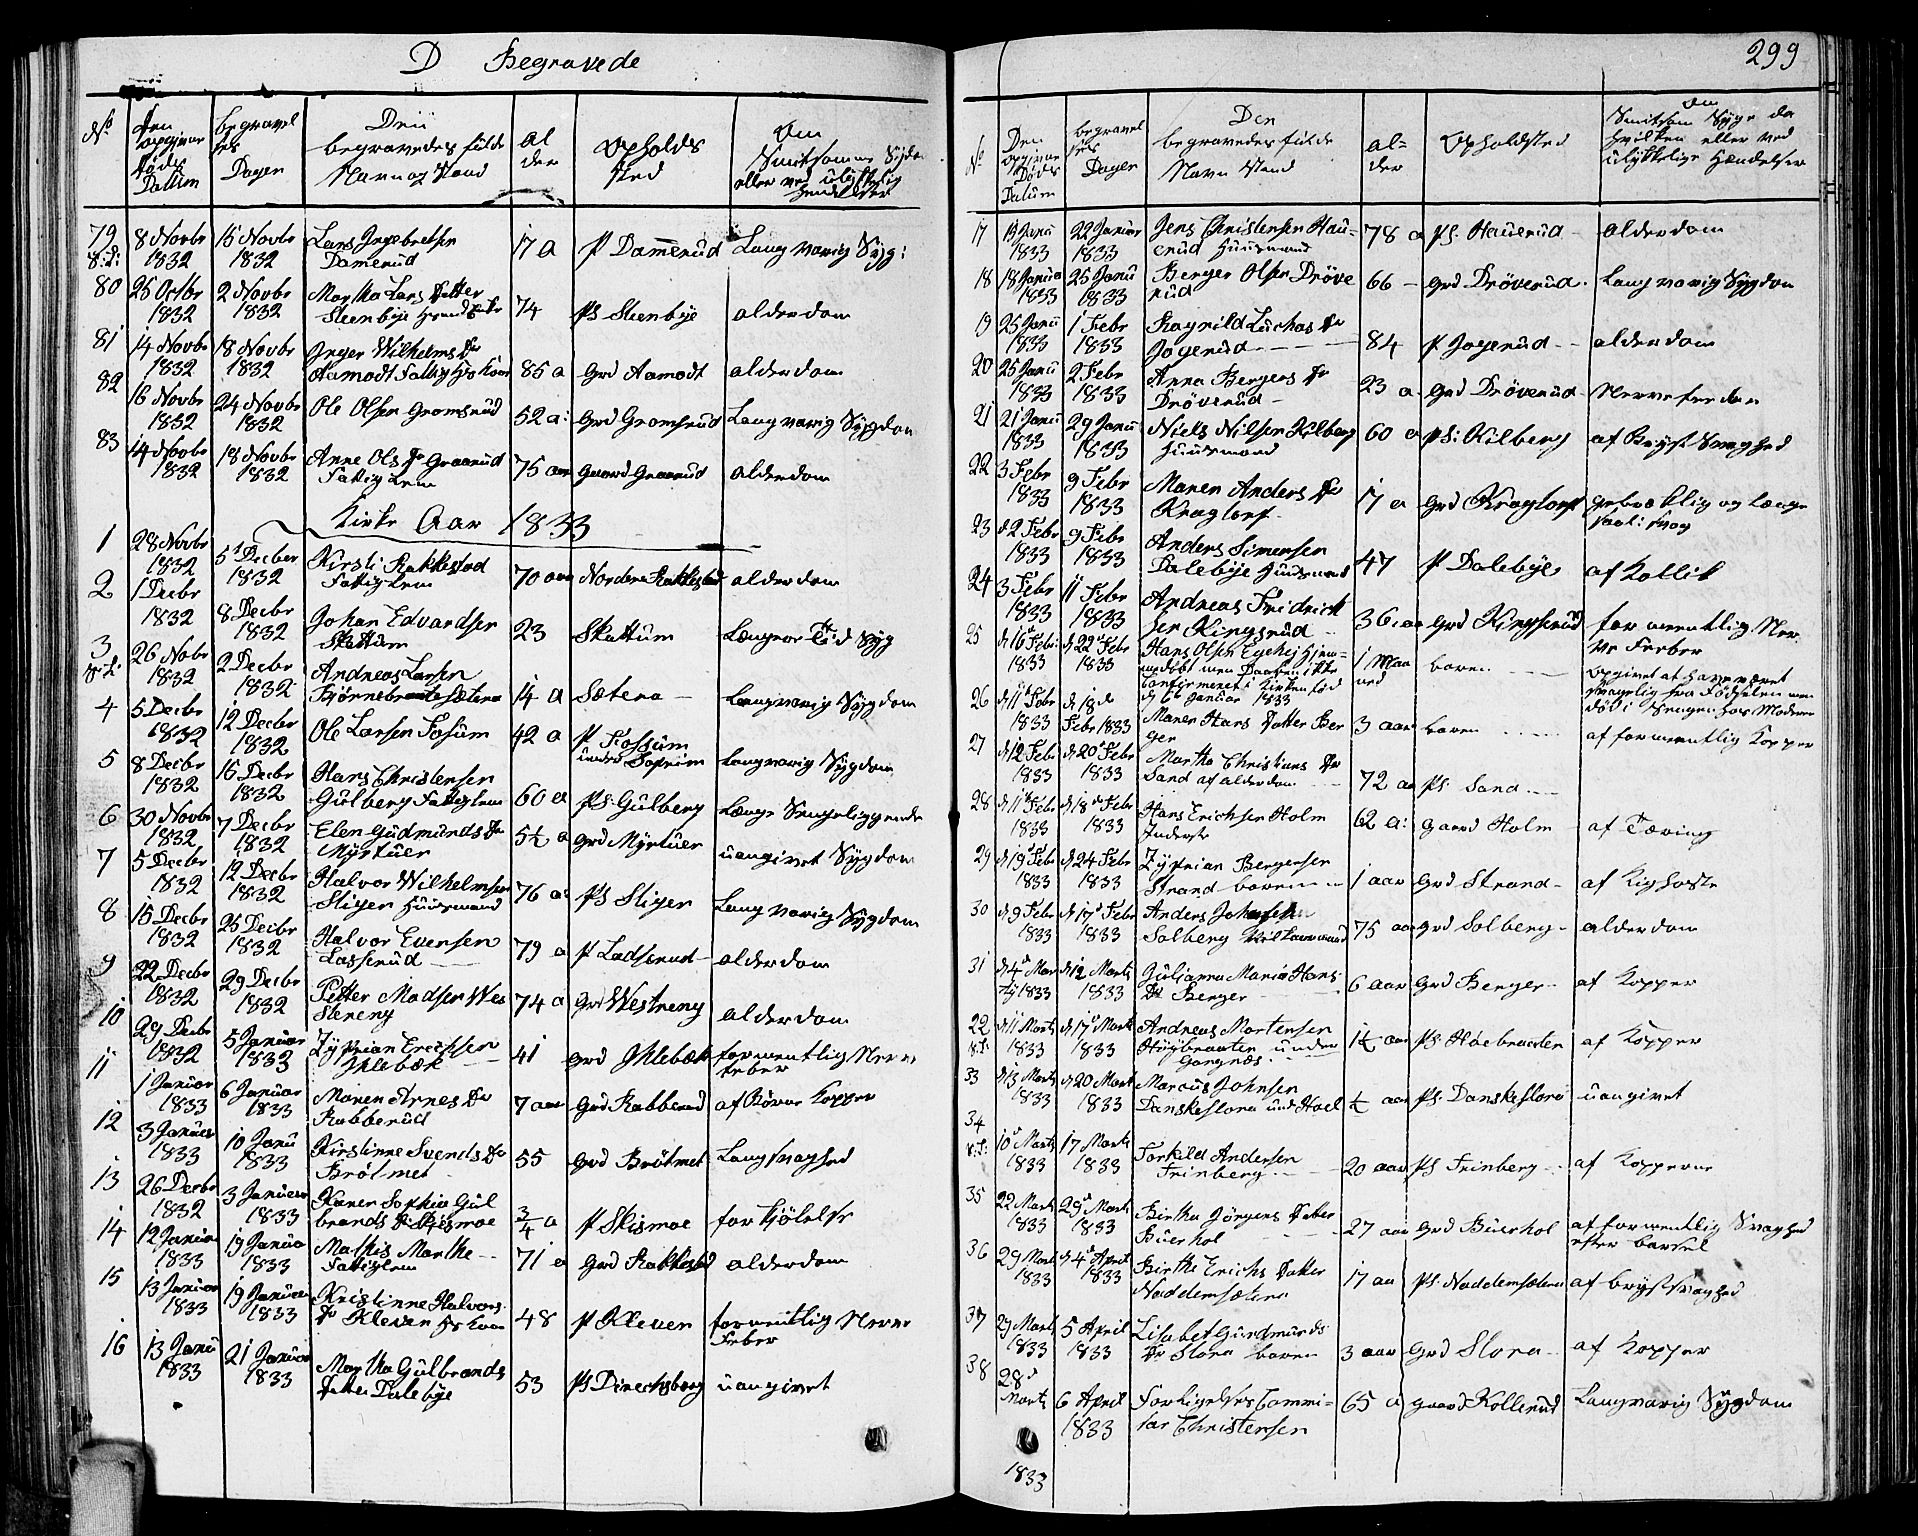 D Begravede
299
No
Den opgivne Døds Datum
begravelses Dagen
Den begravedes fulde Navn og Stand
alder
Opholds sted
Om Smitsomme Sygdom eller ved ulykkelig Hendelser
79 8 Novbr 1832 15 Novbr 1832 Lars Ingebretsen Damerud 17 a P Damerud Langvarig Syg:
80 25 Octbr 1832 2 Novbr 1832 Martha Lars Datter Steenbye 74 Ps Steenbye alderdom
81 14 Novbr 1832 18 Novbr 1832 Inger Wilhelms Dr Aamodt 85 a Grd Aamodt alderdom
82 16 Novbr 1832 24 Novbr 1832 Ole Olsen Gromsrud 52 a: Grd Gromsrud Langvarig Sygdom
83 14 Novbr 1832 18 Novbr 1832 Anne Ols Dr Graarud Fattig Lem 75 aar Gaard Graarud alderdom
Kirke Aar 1833
1 28 Novbr 1832 5t Decber 1832 Kirsti Rakkestad Fattig Lem 70 aar Nordere Rakkestad alderdom
2 1 Decbr 1832 8 Decbr 1832 Johan Edvardsen Skattum 23 Skattum Længere Tid Syg
3 26 Nobr 1832 2 Decbr 1832 Andreas Larsen Bjørnebraate Sætera 14 a Sætera Langvarig Sygdom
4 5 Decbr 1832 12 Decbr 1832 Ole Larsen Fosum 42 a P Fossum under Langvarig Sygdom
5 8 Decbr 1832 16 Decbr 1832 Hans Christensen Gulberg Fattiglem 60 a Ps: Gulberg Længe Sengeliggende
6 30 Novbr 1832 7 Decbr 1832 Elen Gudmunds Dr Myrtuer 5½ a Grd Myrtuer uangivet Sygdom
7 5 Decbr 1832 12 Decbr 1832 Halvor Wilhelmsen Stigen Huusmand 76 a: Ps Stigen Langvarig Sygdom
8 15 Decbr 1832 25 Decbr 1832 Halvor Evensen Lasserud 79 a P Ladserud alderdom
9 22 Decbr 1832 29 Decbr 1832 Petter Madsen Westereng 74 a Grd Westreng alderdom
10 29 Decbr 1832 5 Januar 1833 Zyprian Erichsen Ihlebæk 41 Grd Ihlebæk formentlig Nerve feber
11 1 Januar 1833 6 Januar 1833 Maren Arnes Dr Rabberud 7 aar Grd Rabberud af Børne Kopper
12 3 Januar 1833 10 Janu 1833 Kirstinne Svends Dr Brølmet 55 Grd Brølmet Lang svaghed
13 26 Decbr 1832 3 Januar 1833 Karen Sophie Gulbrands Dr Skismoe ¾ a P Skismoe forkjølelse
14 12 Januar 1833 19 Januar 1833 Mathis Marthe Fattiglem 71 a Grd Rakkestad alderdom
15 13 Januar 1833 19 Januar 1833 Kristinne Halvors Dr Kleven 48 P Kleven formentlig Nerve Feber
16 13 Janu 1833 21 Januar 1833 Martha Gulbrands Datter Dalebye 53 Ps Direchsberg uangivet
No
Den opgivne Døds Datum
begravelses Dagen
Den begravedes fulde Navn Stand
alder
Opholdsted
Om Smitsom Syge da hvilken eller ved ulykkelige Hændelser
17 1833 22 Januar 1833 Jens Christensen Hauerud Huusmand 78 a Ps. Hauerud alderdom
18 18 Janua 1833 25 Janu 1833 Berger Olsen Drøverud 66 Grd Drøverud Langvarig Sygdom
19 25 Janu 1833 1 Febr 1833 Ragnild Luchas Dr Jogerud 84 P Jogerud alderdom
20 25 Janu 1833 2 Febr 1833 Anna Bergers Dr Drøverud 23 a Grd Drøverud Nervefeeber
21 21 Janu 1833 29 Janu 1833 Niels Nilsen Kilberg Huusmand 60 a Ps: Kilberg af Bryst Svaghed
22 3 Febr 1833 9 Febr 1833 Maren Anders Dr Kragtorp 17 a Grd Kragtorp
23 d 2 Febr 1833 9 Febr 1833 Anders Simensen Dalebye Huusmand 47 P Dalebye af Kollik
24 3 Febr 1833 11 Febr 1833 Andreas Fridericksen Kingsrud 36 aar Grd Kingsrud formentlig Nerve Feeber
25 d 16 Febr: 1833 d 22 Febr 1833 Hans Olsen hjemmedøbt men Daaben ikke Confirmeret i Kirken fød d 6te Januar 1833 1 Maaned baren opgivet at have været svagelig fra Fødselen men døde i Sengen hos Moderen
26 d 11 Febr 1833 d 18de Febr 1833 Maren Hans Datter Berger 3 aar baren af formentlig Kopper
27 d 12 Febr 1833 d 20 Febr 1833 Martha Christians Dr Sand af alderdom 72 aa Ps. Sand
28 d 11 Febr 1833 d 18de Febr 1833 Hans Erichsen Holm Inderst 62 a: Gaard Holm af Tæring
29 d 19 Febr 1833 d 24 Febr 1833 Zyprian Bergersen Strand baren 1 aar Grd Strand af Kighoste
30 d 9 Febr 1833 d 17d Febr 1833 Anders Johansen Solberg 75 aar Grd Solberg alderdom
31 d 4 Marty 1833 d 12 Marts 1833 Gulianna Maria Hans Dr Berger 6 aar Grd Berger af Kopper
32 d 11 Marts 1833 d 17 Marts 1833 Andreas Mortensen Høybraaten under Gangnæs 1½ aar Ps. Høebraaten af Kopper
33 d 13 Marts 1833 d 20 Mart 1833 Marcus Johnsen Danskeslora und Hoel ½ aar Ps. Danskeslora uangivet
34 10 Marts 1833 17 Marts 1833 Torkild Andersen Frinberg 20 aar Ps Frinberg af Kopperne
35 22 Marts 1833 29 Marts 1833 Birtha Jørgens Datter Buerhol 27 aar Grd Buerhol af formentlig Svaghed efter barsel
36 29 Marts 1833 d 4 April 1833 Birthe Erichs Datter Noddemsætera 17 aar Ps. Noddemsætera af brystsvaghed
37 29 Marts 1833 5 April 1833 Lisabet Gudmunds Dr Slora baren 3 aar Grd Slora af Kopper
38 28d Marts 1833 6 April 1833 Forligelses Commisar Christensen 65 a Gaard Kollerud Langvarig Sygdom